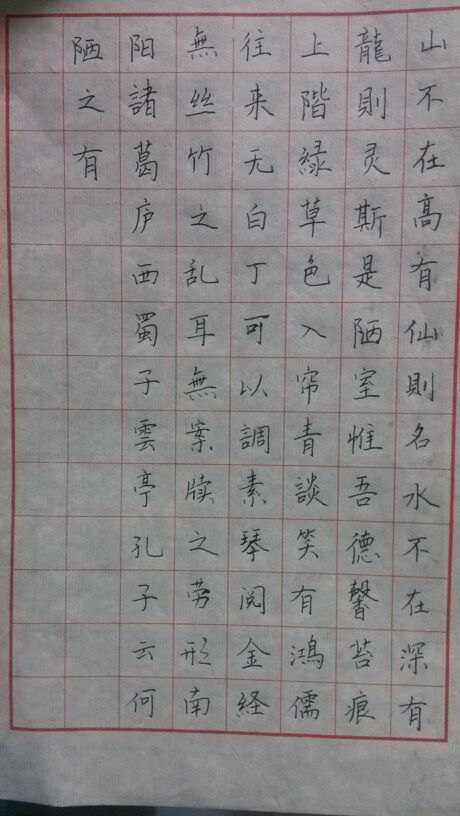 山不在高有仙則名水不在深有
龍則灵斯是陋室惟吾德馨苔痕
上階綠草色入帘青談笑有鴻儒
往来无白丁可以調素琴阅金経
無丝竹之乱耳無案牍之劳形南
阳諸葛庐西蜀子雲亭孔子云何
陋之有